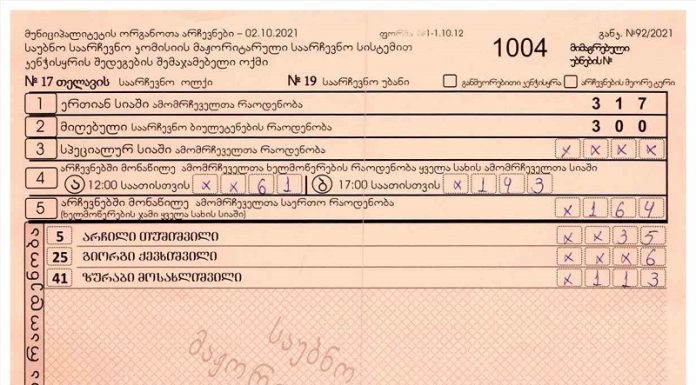 მუნიციპალიტეტის ორგანოთა არჩევნები – 02.10.2021 ფორმა №1-1.10.12 განკ. №92/2021
საუბნო საარჩევნო კომისიის მაჟორიტარული საარჩევნო სისტემით 1004 მიმაგრებული
კენჭისყრის შედეგების შემაჯამებელი ოქმი უბნების №
№ 17 თელავის საარჩევნო ოლქი № 19 საარჩევნო უბანი განმეორებითი კენჭისყრა არჩევნების მეორე ტური
1 ერთიან სიაში ამომრჩეველთა რაოდენობა 317
2 მიღებული საარჩევნო ბიულეტენების რაოდენობა 300
3 სპეციალურ სიაში ამომრჩეველთა რაოდენობა x x x x
არჩევნებში მონაწილე ამომრჩეველთა ხელმოწერების რაოდენობა ყველა სახის ამომრჩეველთა სიაში
4 ა 12:00 საათისთვის x x 6 1 ბ 17:00 საათისთვის x 1 4 3
5 არჩევნებში მონაწილე ამომრჩეველთა საერთო რაოდენობა x 1 6 4
(ხელმოწერების ჯამი ყველა სახის სიაში)
5 არჩილი თუშიშვილი x x 3 5
25 გიორგი ქევხიშვილი x x x 6
41 ზურაბი მოსახლიშვილი x 1 1 3
საუბნო